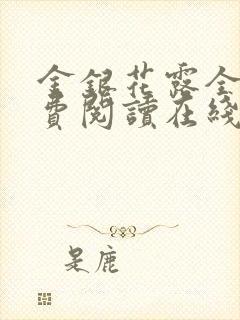 金銀花露全
費閱讀在綫
是鹿